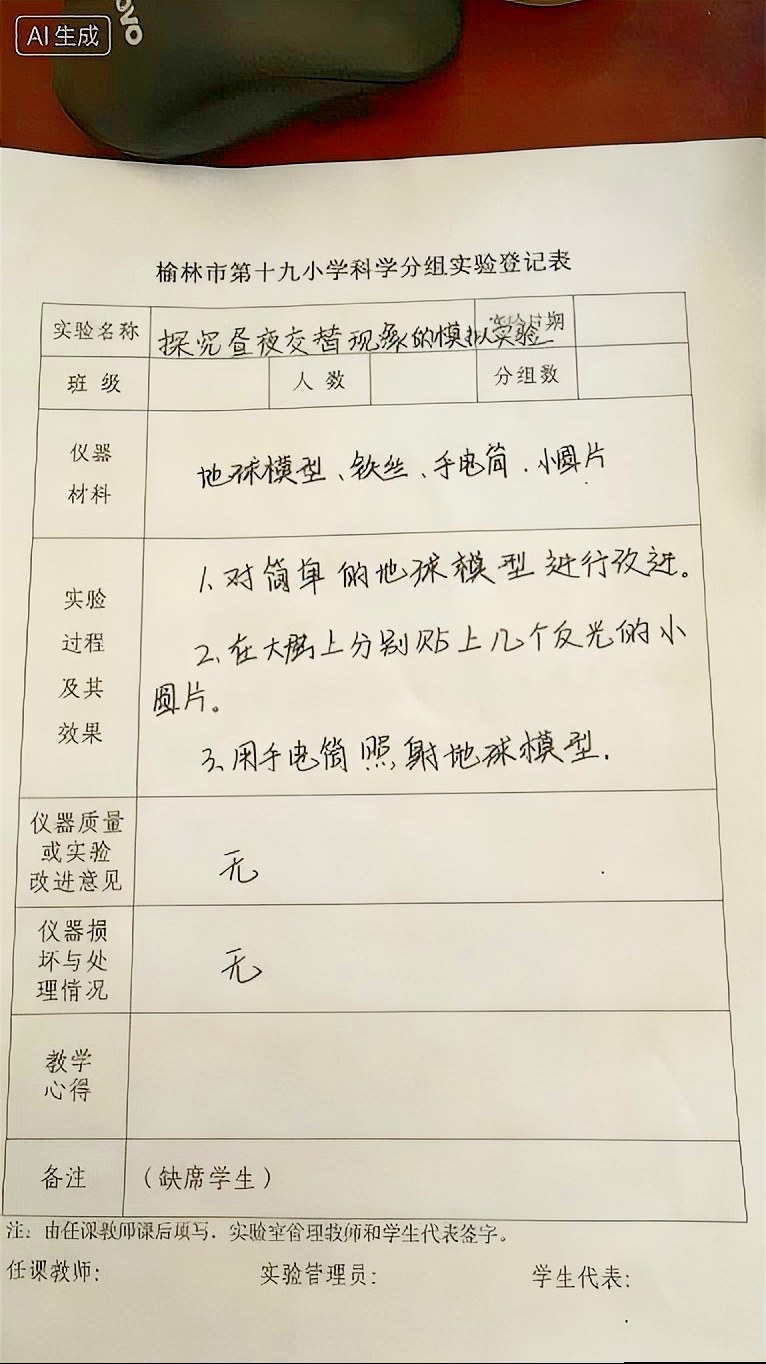 AI生成
020
榆林市第十九小学科学分组实验登记表
实验名称 探究昼夜交替现象的模拟实验 期
班 级 人 数 分组数
仪器
材料
地球模型、铁丝、手电筒.小圆片
实验
过程
及其
效果
1、对简单的地球模型进行改进。
2、在大 上分别贴上几个反光的小
圆片。
3、用手电筒照射地球模型.
仪器质量
或实验
改进意见
无
仪器损
坏与处
理情况
无
教学
心得
备注 (缺席学生)
注:由任课教师课后填写.实验室管理教师和学生代表签字。
任课教师: 实验管理员: 学生代表: